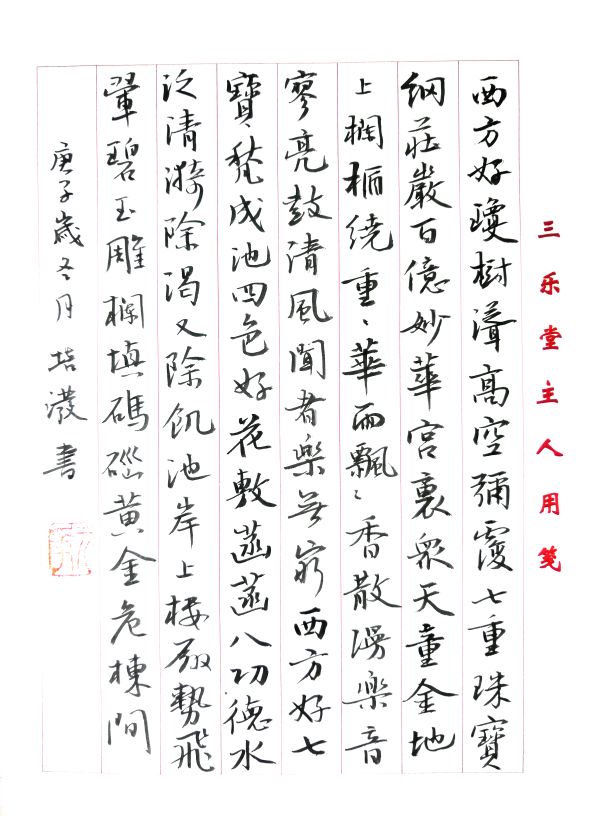 三乐堂主人用笺
西方好瓊樹聳高空彌覆七重珠寶
網莊嚴百億妙華宮裏眾天童金地
上欄楯繞重〻華雨飄〻香散漫樂音
寥亮鼓清風聞者樂無窮西方好七
寶〻甃成池四色好花敷菡萏八功德水
泛清漪除渴又除飢池岸上樓殿勢飛
翬碧玉雕欄填碼碯黃金危棟間
庚子歲冬月培潑書